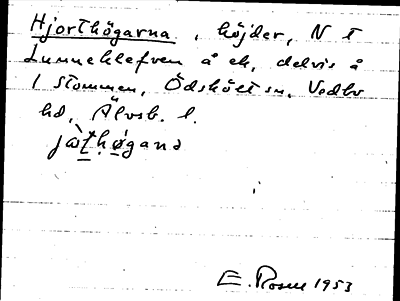 Hjorthögarna, höjder, N t
Lunneklefven å ek, delvis å
1 Stommen, Ödskölt sn, Vedbo
hd, Älvsb. l.
jòt̲hø̲gana
E. Rosen 1953